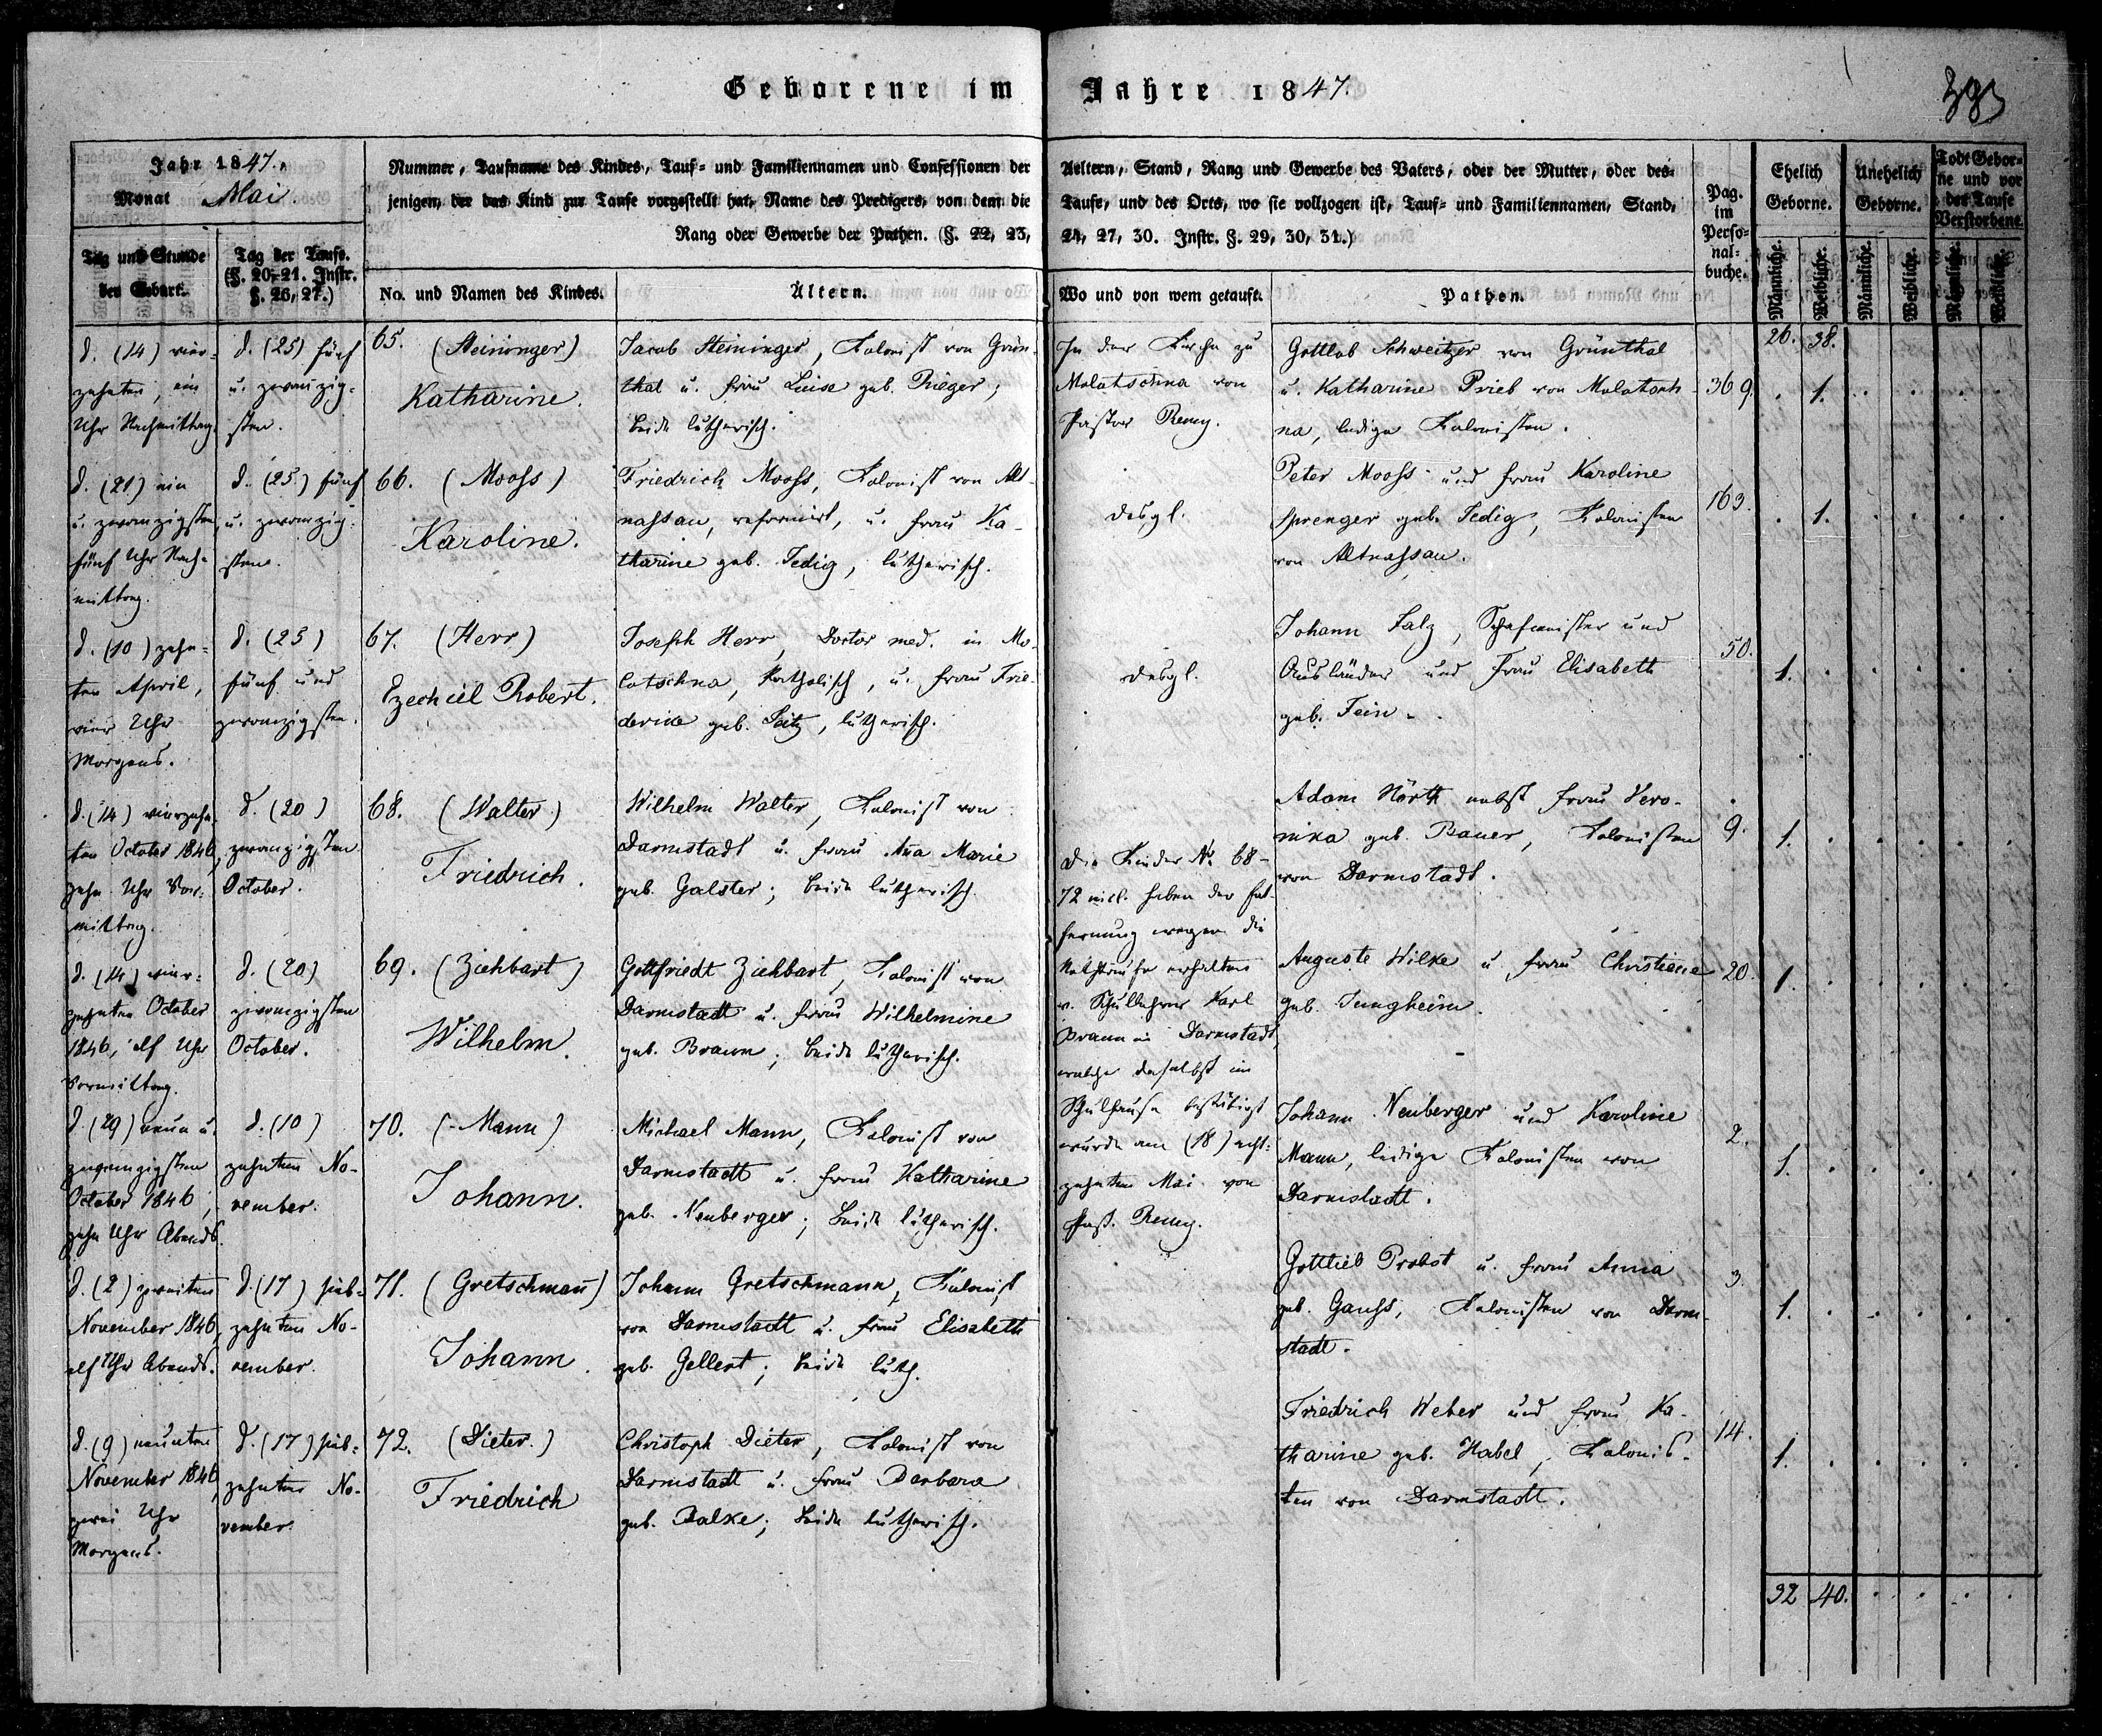 Geborene im Jahre 1847.
383
Jahr 1847.
Monat Mai.
Tag und Stunde
der Geburt.
Tag der Taufe.
(§. 20, 21. Instr.
§. 26, 27.)
Nummer, Taufname des Kindes, Tauf- und Familiennamen und Confessionen der
jenigen, der das Kind zur Taufe vorgestellt hat, Name des Predigers, von dem die
Rang oder Gewerbe der Pathen. (§. 22, 23,
No. und Namen des Kindes.
Ältern.
Aeltern, Stand, Rang und Gewerbe des Vaters, oder der Mutter, oder des-
Taufe, und des Orts, wo sie vollzogen ist, Tauf- und Familiennamen, Stand,
24, 27, 30. Instr. §. 29, 30, 31.)
Wo und von wem getauft.
Pathen.
Pag.
im
Perso-
nal-
buche.
Ehelich
Geborne.
Unehelich
Geborne.
Todt Gebor-
ne und vor
der Taufe
Verstorbene.
Männliche.
Weibliche.
Männliche.
Weibliche.
Männliche.
Weibliche.
26. 38.
d. (14) vier-
zehnten, ein
Uhr Nachmittag.
d. (25) fünf
u. zwanzig-
sten.
65. (Steininger)
Katharine.
Jacob Steininger, Kolonist von Grün-
thal u. Frau Luise geb. Rieger;
beide lutherisch.
In der Kirche zu
Molotschna von
Pastor Remy.
Gottlob Schweitzer von Grünthal
u. Katharine Prieb von Molotsch-
na, ledige Kolonisten.
369. 1.
d. (21) ein
u. zwanzigsten
fünf Uhr Nach-
mittag.
d. (25) fünf
u. zwanzig-
sten.
66. (Mooss)
Karoline.
Friedrich Mooss, Kolonist von Alt-
nassau, reformirt, u. Frau Ka-
tharine geb. Fedig, lutherisch.
desgl.
Peter Mooss und Frau Karoline
Sprenger geb. Fedig, Kolonisten
von Altnassau.
163. 1.
d. (10) zehn-
ten April,
vier Uhr
Morgens.
d. (25)
fünf und
zwanzigsten.
67. (Herr)
Ezechiel Robert.
Joseph Herr, Doctor med. in Mo-
lotschna, katholisch, u. Frau Frie-
derike geb. Seitz, lutherisch.
desgl.
Johann Falz, Schafmeister und
Ausländer und Frau Elisabeth
geb. Fein.
50. 1.
d. (14) vierzehn-
ten October 1846,
zehn Uhr Vor-
mittag.
d. (20)
zwanzigsten
October.
68. (Walter)
Friedrich.
Wilhelm Walter, Kolonist von
Darmstadt u. Frau Anna Marie
geb. Galster; beide lutherisch.
Die Kinder No. 68-
72 incl. haben der Ent-
fernung wegen die
Nothtaufe erhalten
v. Schullehrer Karl
Braun in Darmstadt,
welche daselbst im
Schulhause bestätigt
wurde am (18) acht-
zehnten Mai von
Past. Remy.
Adam Hörth nebst Frau Vero-
nika geb. Bauer, Kolonisten
von Darmstadt.
9. 1.
d. (14) vier-
zehnten October
1846, elf Uhr
Vormittag.
d. (20)
zwanzigsten
October.
69. (Ziehbart)
Wilhelm.
Gottfriedt Ziehbart, Kolonist von
Darmstadt u. Frau Wilhelmine
geb. Braun; beide lutherisch.
Auguste Wilke u Frau Christiene
geb. Jungheim.
20. 1.
d. (29) neun u.
zwanzigsten
October 1846,
zehn Uhr Abends.
d. (10)
zehnten No-
vember.
70. (Mann)
Johann.
Michael Mann, Kolonist von
Darmstadt u. Frau Katharine
geb. Neuberger; beide lutherisch.
Johann Neuberger und Karoline
Mann, ledige Kolonisten von
Darmstadt.
2. 1.
d. (2) zweiten
November 1846,
elf Uhr Abends.
d. (17) sieb-
zehnten No-
vember.
71. (Gretschmann)
Johann.
Johann Gretschmann, Kolonist
von Darmstadt u. Frau Elisabeth
geb. Gellert; beide luth.
Gottlieb Probst u. Frau Anna
geb. Gauss, Kolonisten von Darm-
stadt.
3. 1.
d. (9) neunten
November 1846,
zwei Uhr
Morgens.
d. (17) sieb-
zehnten No-
vember.
72. (Dieter.)
Friedrich
Christoph Dieter, Kolonist von
Darmstadt u. Frau Barbara
geb. Balke; beide lutherisch.
Friedrich Weber und Frau Ka-
tharine geb. Habel, Kolonis-
ten von Darmstadt.
14. 1.
32 40.